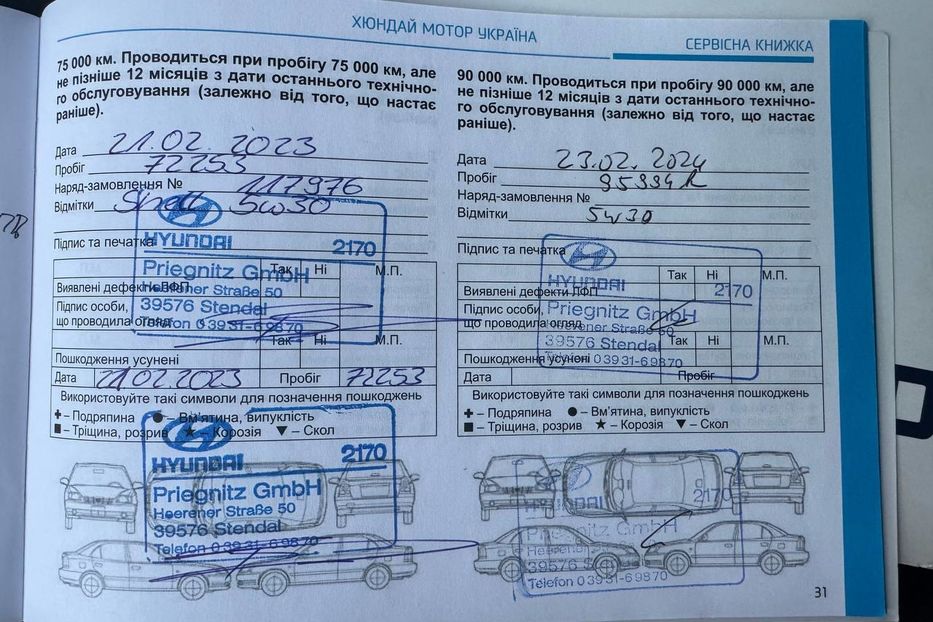 ХЮНДАЙ МОТОР УКРАЇНА
СЕРВІСНА КНИЖКА
75 000 км. Проводиться при пробігу 75 000 км, але
не пізніше 12 місяців з дати останнього технічно-
го обслуговування (залежно від того, що настає
раніше).
Дата 21.02.2023
Пробіг 72253
Наряд-замовлення № 117976
Відмітки Shell 5w30
Підпис та печатка
HYUNDAI 2170
Priegnitz GmbH
Heerener Straße 50
39576 Stendal
Telefon 0 39 31-6 98 70
Так Ні М.П.
Виявлені дефекти ЛФП
Підпис особи,
що проводила огляд
Так Ні М.П.
Пошкодження усунені
Дата 21.02.2023 Пробіг 72253
Використовуйте такі символи для позначення пошкоджень
✚ – Подряпина ● – Вм'ятина, випуклість
■ – Тріщина, розрив ★ – Корозія ▼ – Скол
HYUNDAI 2170
Priegnitz GmbH
Heerener Straße 50
39576 Stendal
Telefon 0 39 31-6 98 70
90 000 км. Проводиться при пробігу 90 000 км, але
не пізніше 12 місяців з дати останнього технічно-
го обслуговування (залежно від того, що настає
раніше).
Дата 23.02.2024
Пробіг
Наряд-замовлення №
Відмітки 5w30
Підпис та печатка
HYUNDAI 2170
Priegnitz GmbH
Heerener Straße 50
39576 Stendal
Telefon 0 39 31-6 98 70
Так Ні М.П.
Виявлені дефекти ЛФП
Підпис особи,
що проводила огляд
Так Ні М.П.
Пошкодження усунені
Дата Пробіг
Використовуйте такі символи для позначення пошкоджень
✚ – Подряпина ● – Вм'ятина, випуклість
■ – Тріщина, розрив ★ – Корозія ▼ – Скол
HYUNDAI 2170
Priegnitz GmbH
Heerener Straße 50
39576 Stendal
Telefon 0 39 31-6 98 70
31